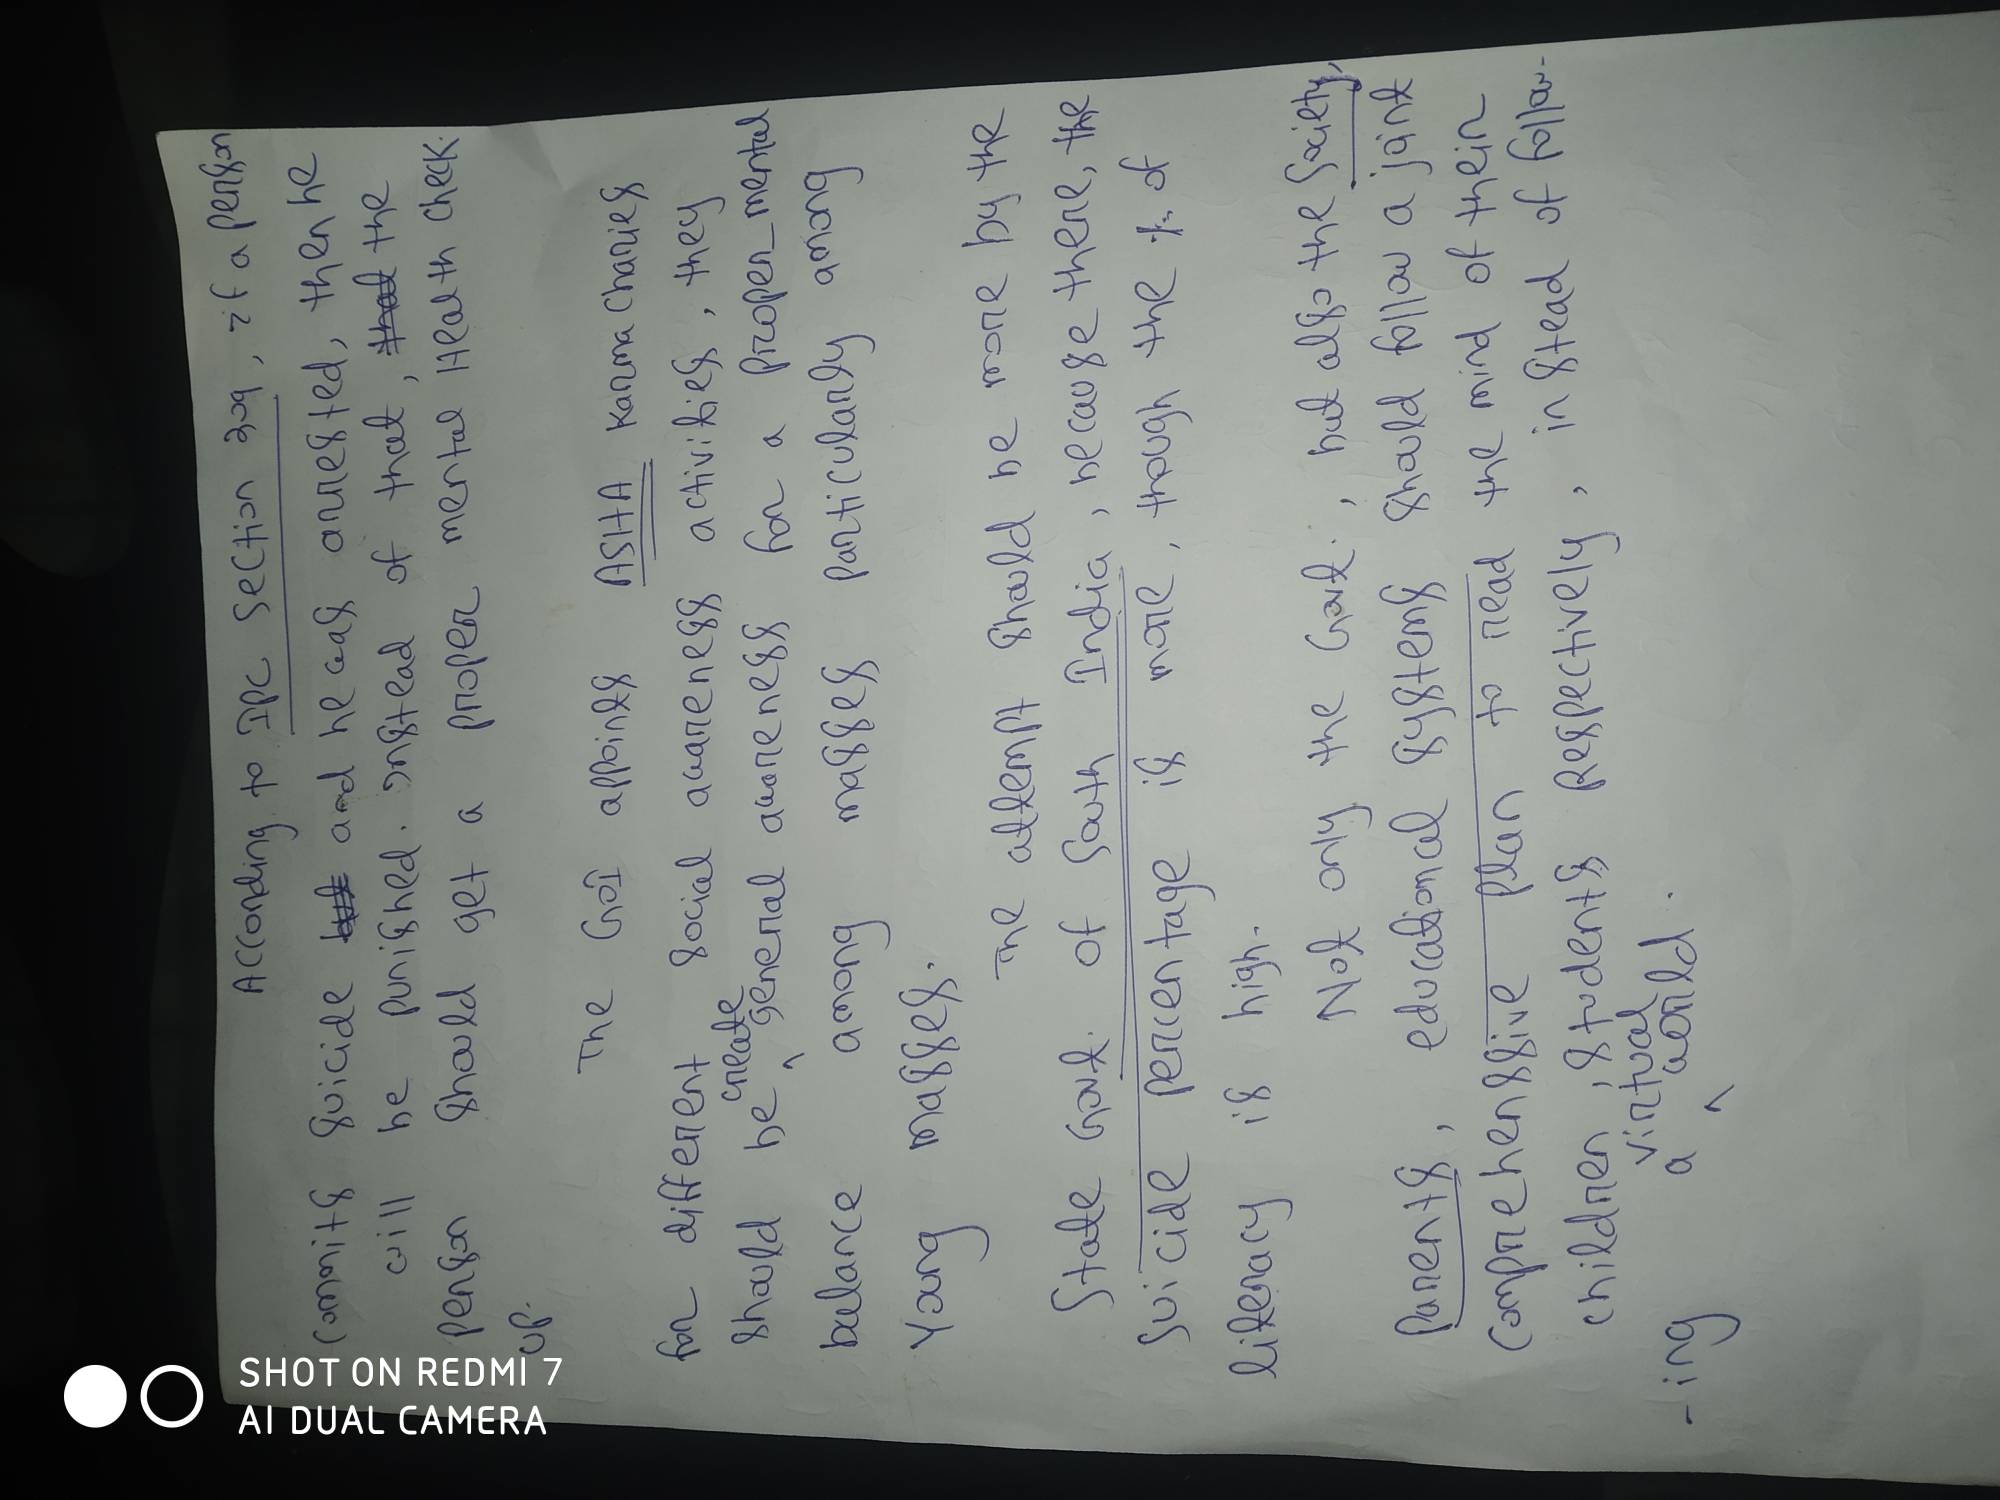 According to IPC Section 309, if a person
commits suicide and he was arrested, then he
will be punished. Instead of that, the
person should get a proper mental Health check
up.
The GoI appoints ASHA Karmacharies
for different social awareness activities, they
should be create general awareness for a proper mental
balance among masses particularly among
Young masses.
The attempt should be more by the
State Govt. of South India, because there, the
Suicide percentage is more, though the % of
literacy is high.
Not only the Govt., but also the Society,
Parents, educational systems should follow a joint
comprehenssive plan to read the mind of their
children, students Respectively, instead of follow-
-ing a virtual world.
SHOT ON REDMI 7
AI DUAL CAMERA